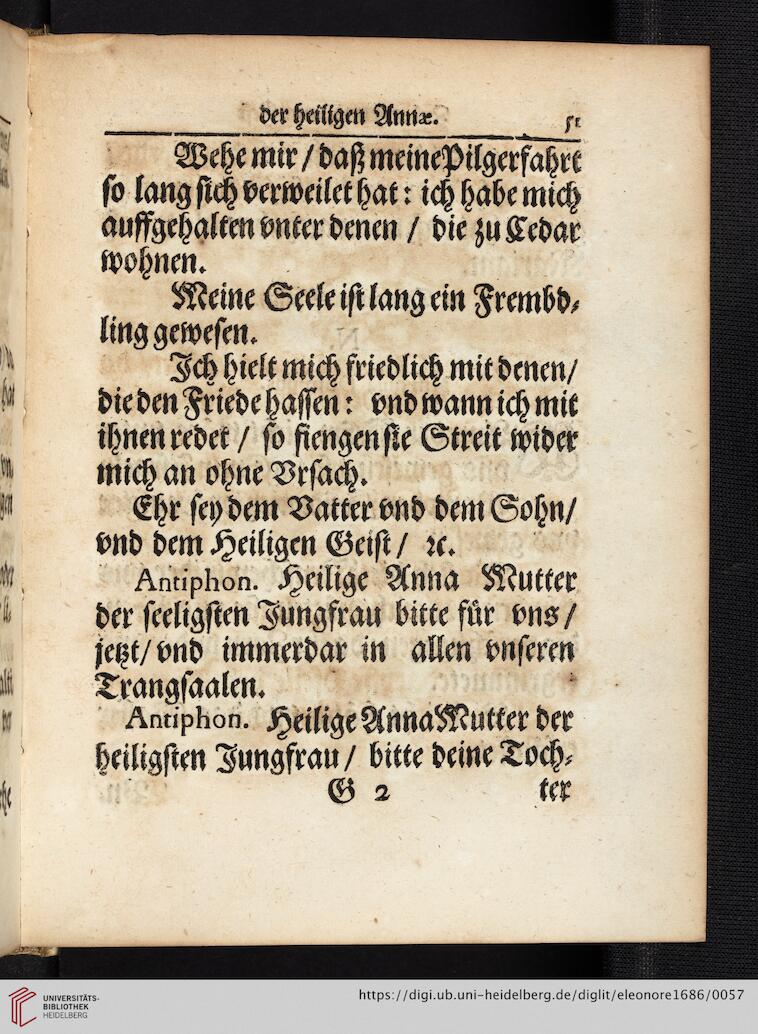 der heiligen Annæ. 51
Wehe mir / daß meine Pilgerfahrt
so lang sich verweilet hat : ich habe mich
auffgehalten vnter denen / die zu Cedar
wohnen.
Meine Seele ist lang ein Frembd-
ling gewesen.
Ich hielt mich friedlich mit denen/
die den Friede hassen : vnd wann ich mit
ihnen redet / so fiengen sie Streit wider
mich an ohne Vrsach.
Ehr sey dem Vatter vnd dem Sohn/
vnd dem Heiligen Geist / ꝛc.
Antiphon. Heilige Anna Mutter
der seeligsten Jungfrau bitte für vns /
jetzt/ vnd immerdar in allen vnseren
Trangsaalen.
Antiphon. Heilige Anna Mutter der
heiligsten Jungfrau / bitte deine Toch-
G 2 ter
UNIVERSITÄTS-
BIBLIOTHEK
HEIDELBERG
https://digi.ub.uni-heidelberg.de/diglit/eleonore1686/0057